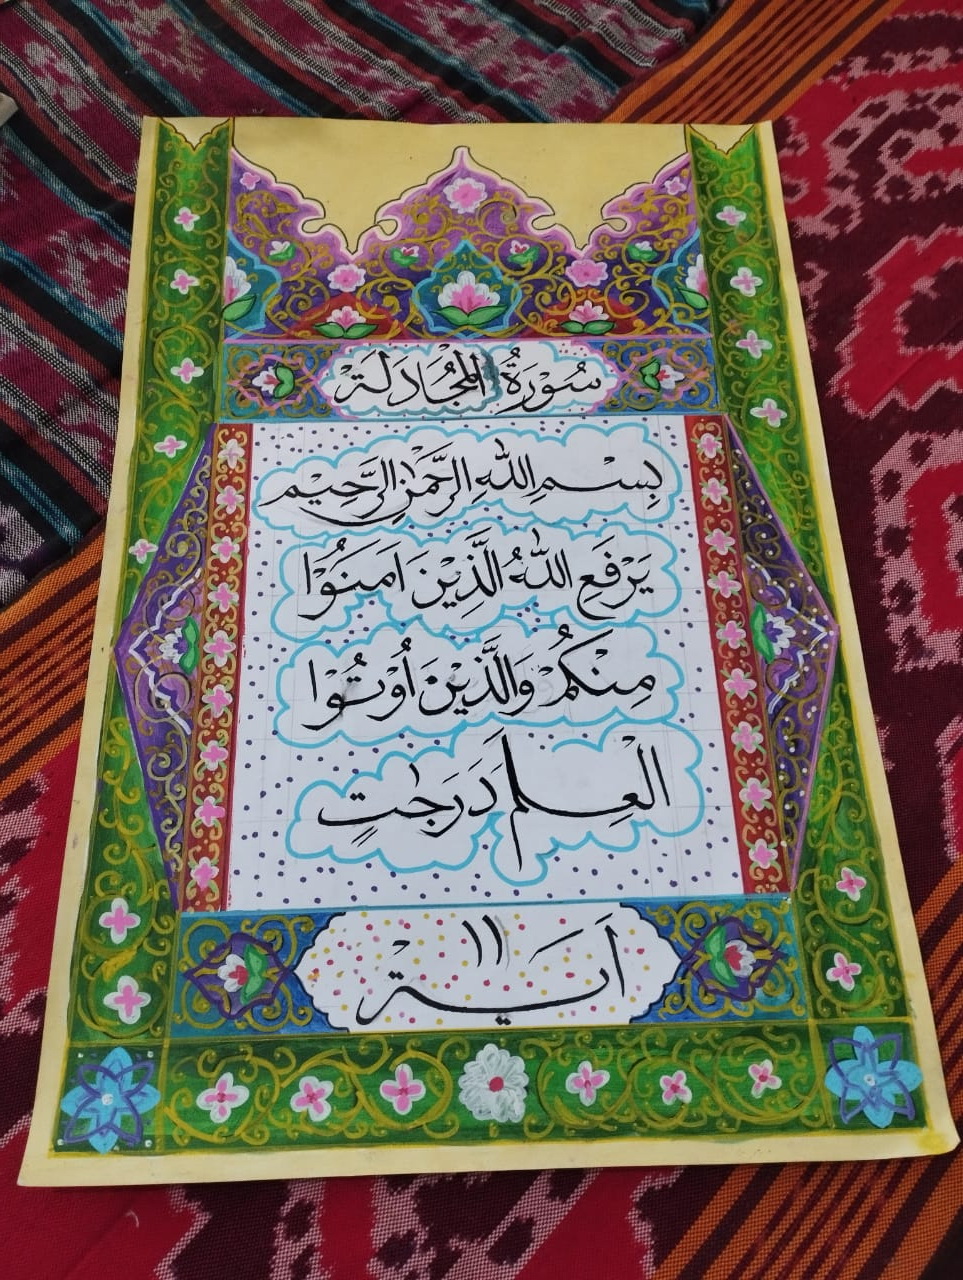 سُوْرَةُ الْمُجَادَلَةَ
بِسْمِ اللّٰهِ الرَّحْمٰنِ الرَّحِيْمِ
يَرْفَعِ اللّٰهُ الَّذِيْنَ اٰمَنُوْا
مِنْكُمْ وَالَّذِيْنَ اُوْتُوْا
الْعِلْمَ دَرَجٰتٍ
اٰيَةْ ١١